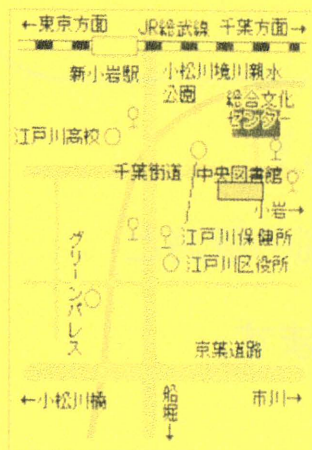 ←東京方面 JR総武線 千葉方面→
新小岩駅
小松川境川親水
公園
総合文化
センター
江戸川高校
千葉街道
中央図書館
小岩→
江戸川保健所
江戸川区役所
グリーンパレス
京葉道路
←小松川橋
船堀↓
市川→